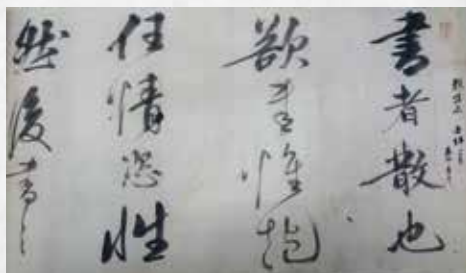 書者散也
欲書懷抱
任情恣性
然後書之